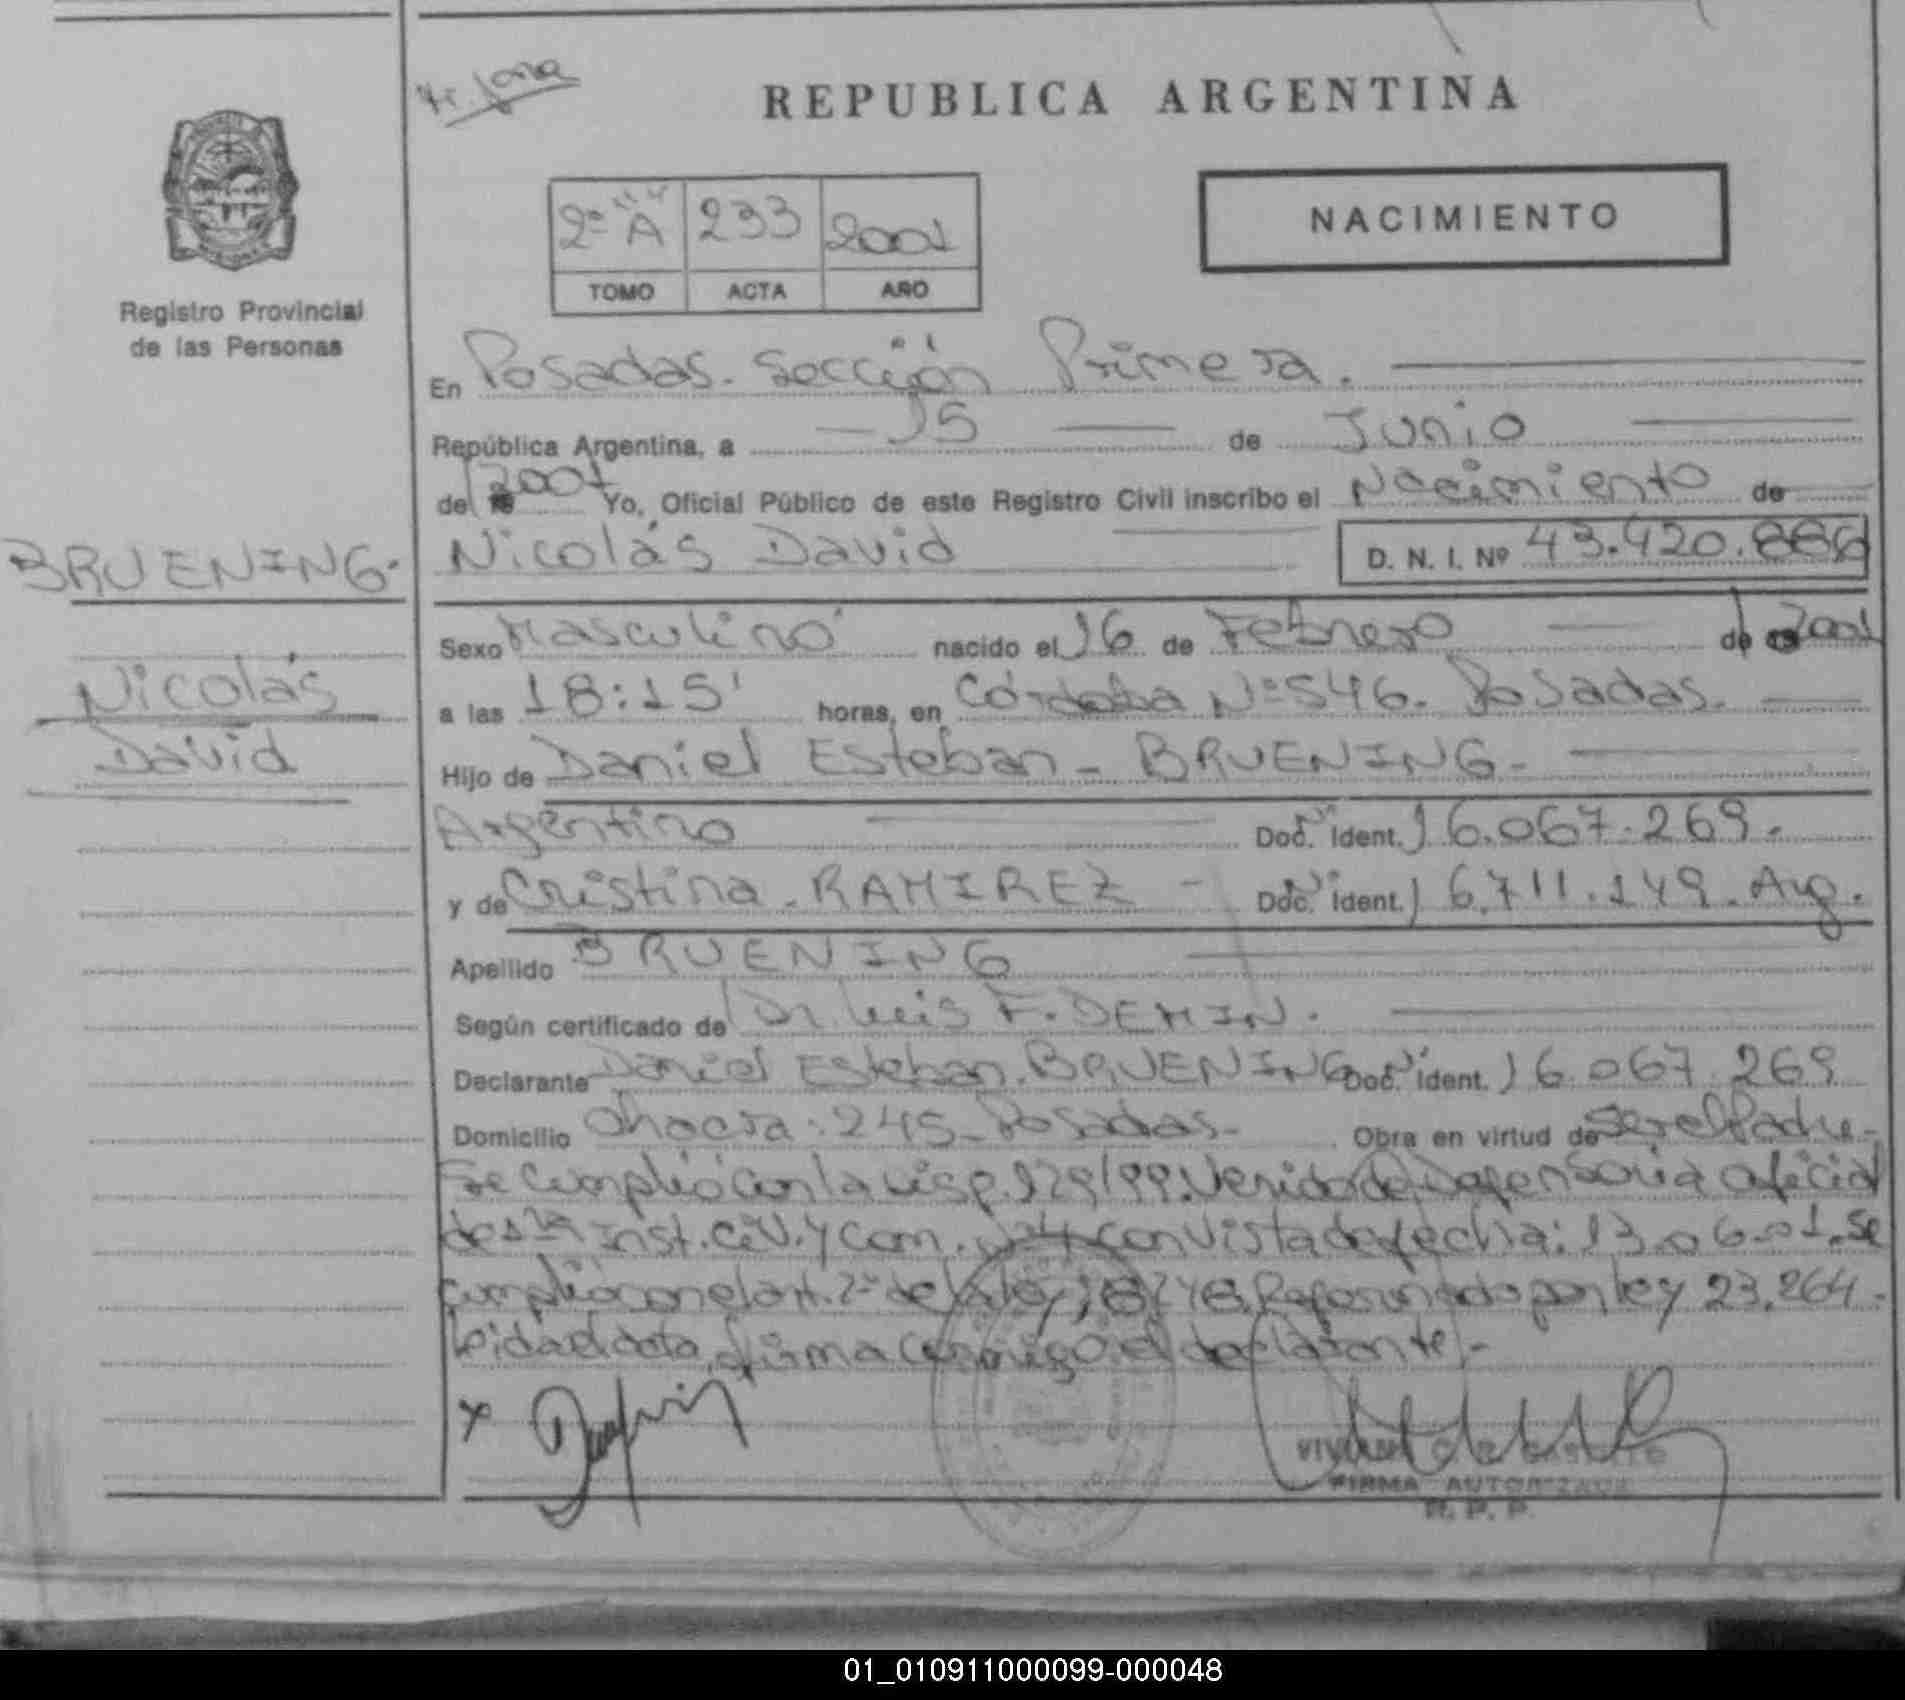 REPUBLICA ARGENTINA
2º "A" 233 2001
TOMO ACTA AÑO
NACIMIENTO
Registro Provincial
de las Personas
En Posadas. Sección Primera.
República Argentina, a 15 de Junio
de 2001 Yo, Oficial Público de este Registro Civil inscribo el Nacimiento de
BRUENING.
Nicolás
David
Nicolás David D. N. I. Nº 43.420.886
Sexo Masculino nacido el 16 de Febrero de 2001
a las 18:15' horas, en Córdoba Nº 546. Posadas.
Hijo de Daniel Esteban - BRUENING -
Argentino Doc. Ident. 16.067.269.
y de Cristina - RAMIREZ - Doc. Ident. 16.711.149. Arg.
Apellido BRUENING
Según certificado de Dr. Luis F. DEMIN.
Declarante Daniel Esteban. BRUENING Doc. Ident. 16.067.269
Domicilio Chacra: 245 - Posadas - Obra en virtud de ser el Padre -
Se cumplió con la Disp. 129/99. Venido de Defensoría Oficial
de 1ra Inst. Civ. y Com. Nº 4 con vista de fecha: 13.06.01. Se
cumplió con el art. 2º de la ley 18.248, Reformado por ley 23.264.
Leida el acta, firma conmigo el declarante.-
x
FIRMA AUTORIZADA
R. P. P.
01_010911000099-000048